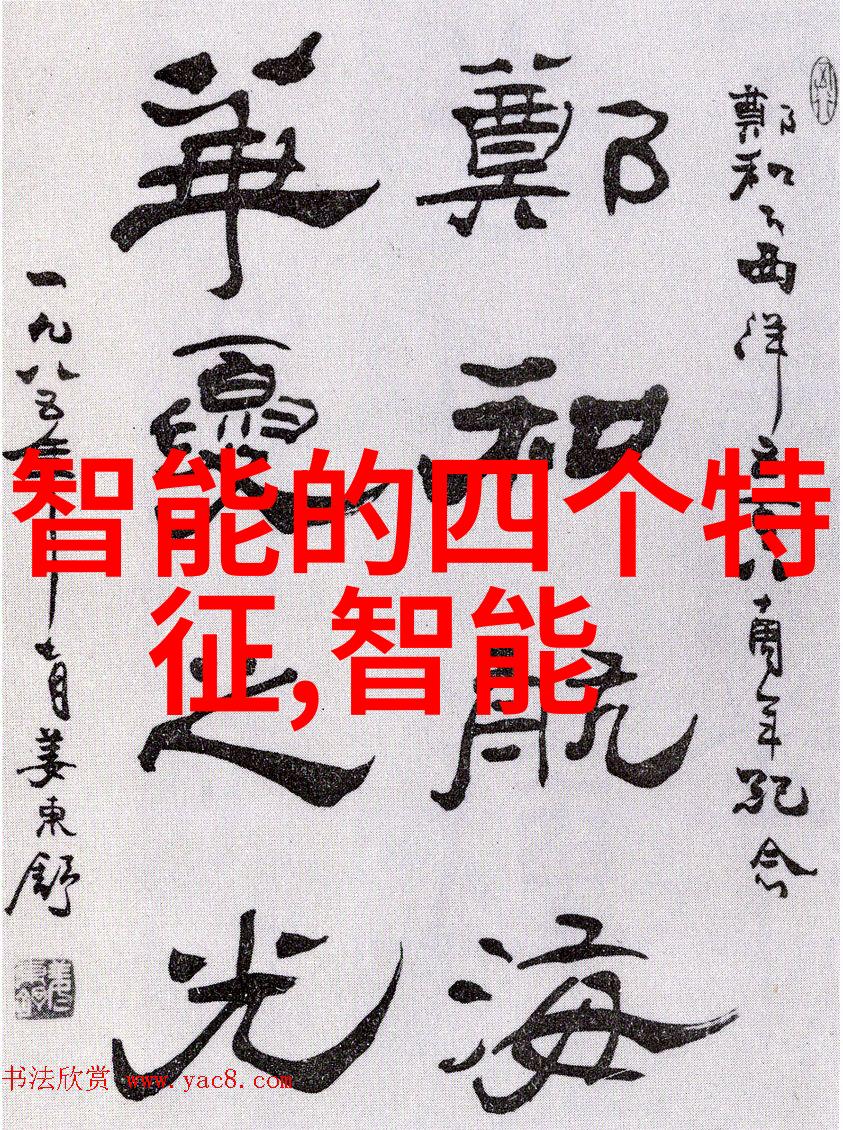 鄭和下西洋五百八十周年紀念
鄭和航海
華夏之光
一九八五年
姜東舒
智能的四个特
征,智能
书法欣赏 www.yac8.com